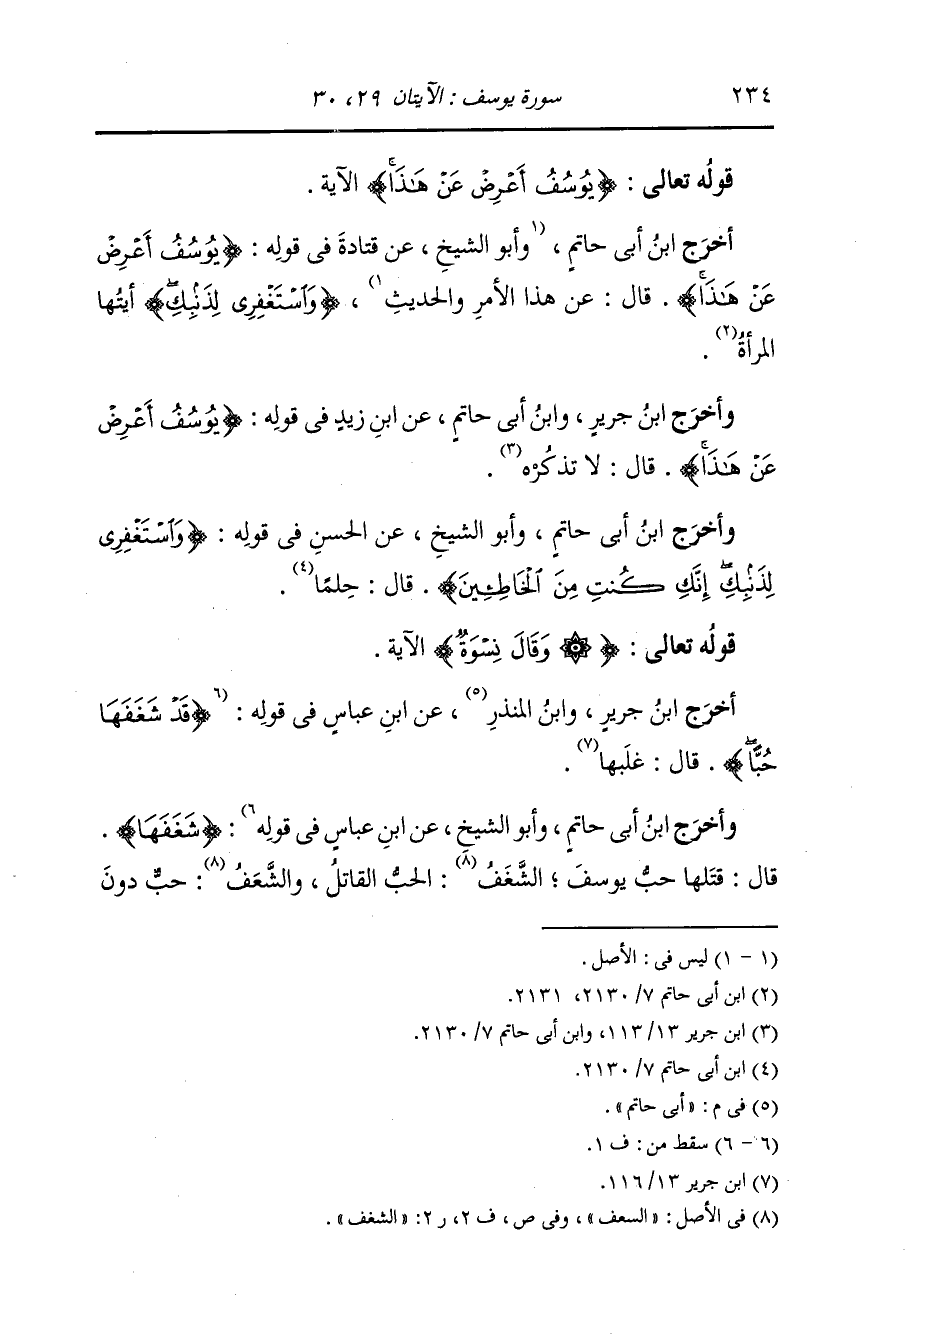 ٢٣٤
سورة يوسف : الآيتان ٢٩، ٣٠
قولُه تعالى : ﴿يُوسُفُ أَعْرِضْ عَنْ هَـٰذَاۚ﴾ الآية .
أخرَج ابنُ أبى حاتمٍ ، (١وأبو الشيخِ ، عن قتادةَ فى قولِه : ﴿يُوسُفُ أَعْرِضْ
عَنْ هَـٰذَاۚ﴾ . قال : عن هذا الأمرِ والحديثِ١) ، ﴿وَٱسْتَغْفِرِى لِذَنۢبِكِۖ﴾ أيتُها
المرأةُ(٢) .
وأخرَج ابنُ جريرٍ ، وابنُ أبى حاتمٍ ، عن ابنِ زيدٍ فى قولِه : ﴿يُوسُفُ أَعْرِضْ
عَنْ هَـٰذَاۚ﴾ . قال : لا تذكُرْه(٣) .
وأخرَج ابنُ أبى حاتمٍ ، وأبو الشيخِ ، عن الحسنِ فى قولِه : ﴿وَٱسْتَغْفِرِى
لِذَنۢبِكِۖ إِنَّكِ كُنتِ مِنَ ٱلْخَاطِـِٔينَ﴾ . قال : حِلمًا(٤) .
قولُه تعالى : ﴿ ۞ وَقَالَ نِسْوَةٌ﴾ الآية .
أخرَج ابنُ جريرٍ ، وابنُ المنذرِ(٥) ، عن ابنِ عباسٍ فى قولِه : (٦﴿قَدْ شَغَفَهَا
حُبًّاۖ﴾ . قال : غلَبها(٧) .
وأخرَج ابنُ أبى حاتمٍ ، وأبو الشيخِ ، عن ابنِ عباسٍ فى قولِه٦) : ﴿شَغَفَهَا﴾ .
قال : قتَلها حبُّ يوسفَ ؛ الشَّغَفُ(٨) : الحبُّ القاتلُ ، والشَّعَفُ(٨) : حبٌّ دونَ
(١ - ١) ليس فى : الأصل .
(٢) ابن أبى حاتم ٧/ ٢١٣٠، ٢١٣١.
(٣) ابن جرير ١٣/ ١١٣، وابن أبى حاتم ٧/ ٢١٣٠.
(٤) ابن أبى حاتم ٧/ ٢١٣٠.
(٥) فى م : «أبى حاتم» .
(٦ - ٦) سقط من : ف ١.
(٧) ابن جرير ١٣/ ١١٦.
(٨) فى الأصل : «السعف» ، وفى ص ، ف ٢، ر ٢: «الشغف» .